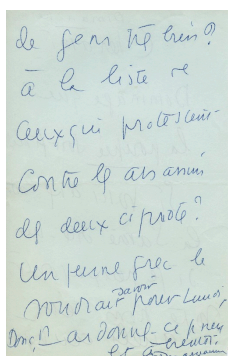 de gens très bien?
à la liste de
ceux qui protestent
contre les assassins
de deux cipriote?
Un jeune grec le
voudrait savoir pour Lundi,
Donc,